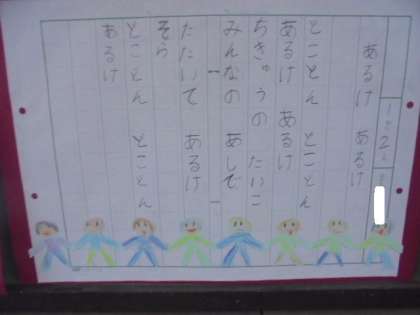 2
あるけ あるけ
とことん とことん
あるけ あるけ
ちきゅうの たいこ
みんなの あしで
たたいて あるけ
そら
とことん とことん
あるけ